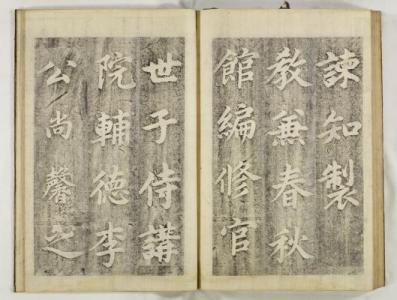 諫知製
教兼春秋
館編修官
世子侍講
院輔德李
公尚馨之